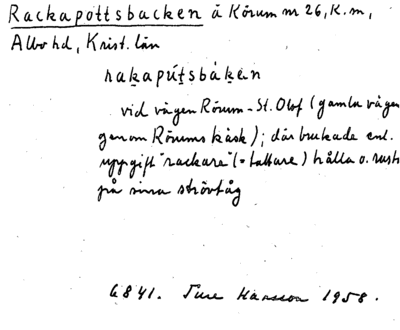 Rackapottsbacken å Rörum nr 26, R. m,
Albo hd, Krist. län
raḵapút̲sbáḵen
vid vägen Rörum - St. Olof (gamla vägen
genom Rörums kåsk); där brukade enl.
uppgift "rackare" (= tattare) hålla o. rasta
på sina strövtåg
6841. Ture Hansson 1958.